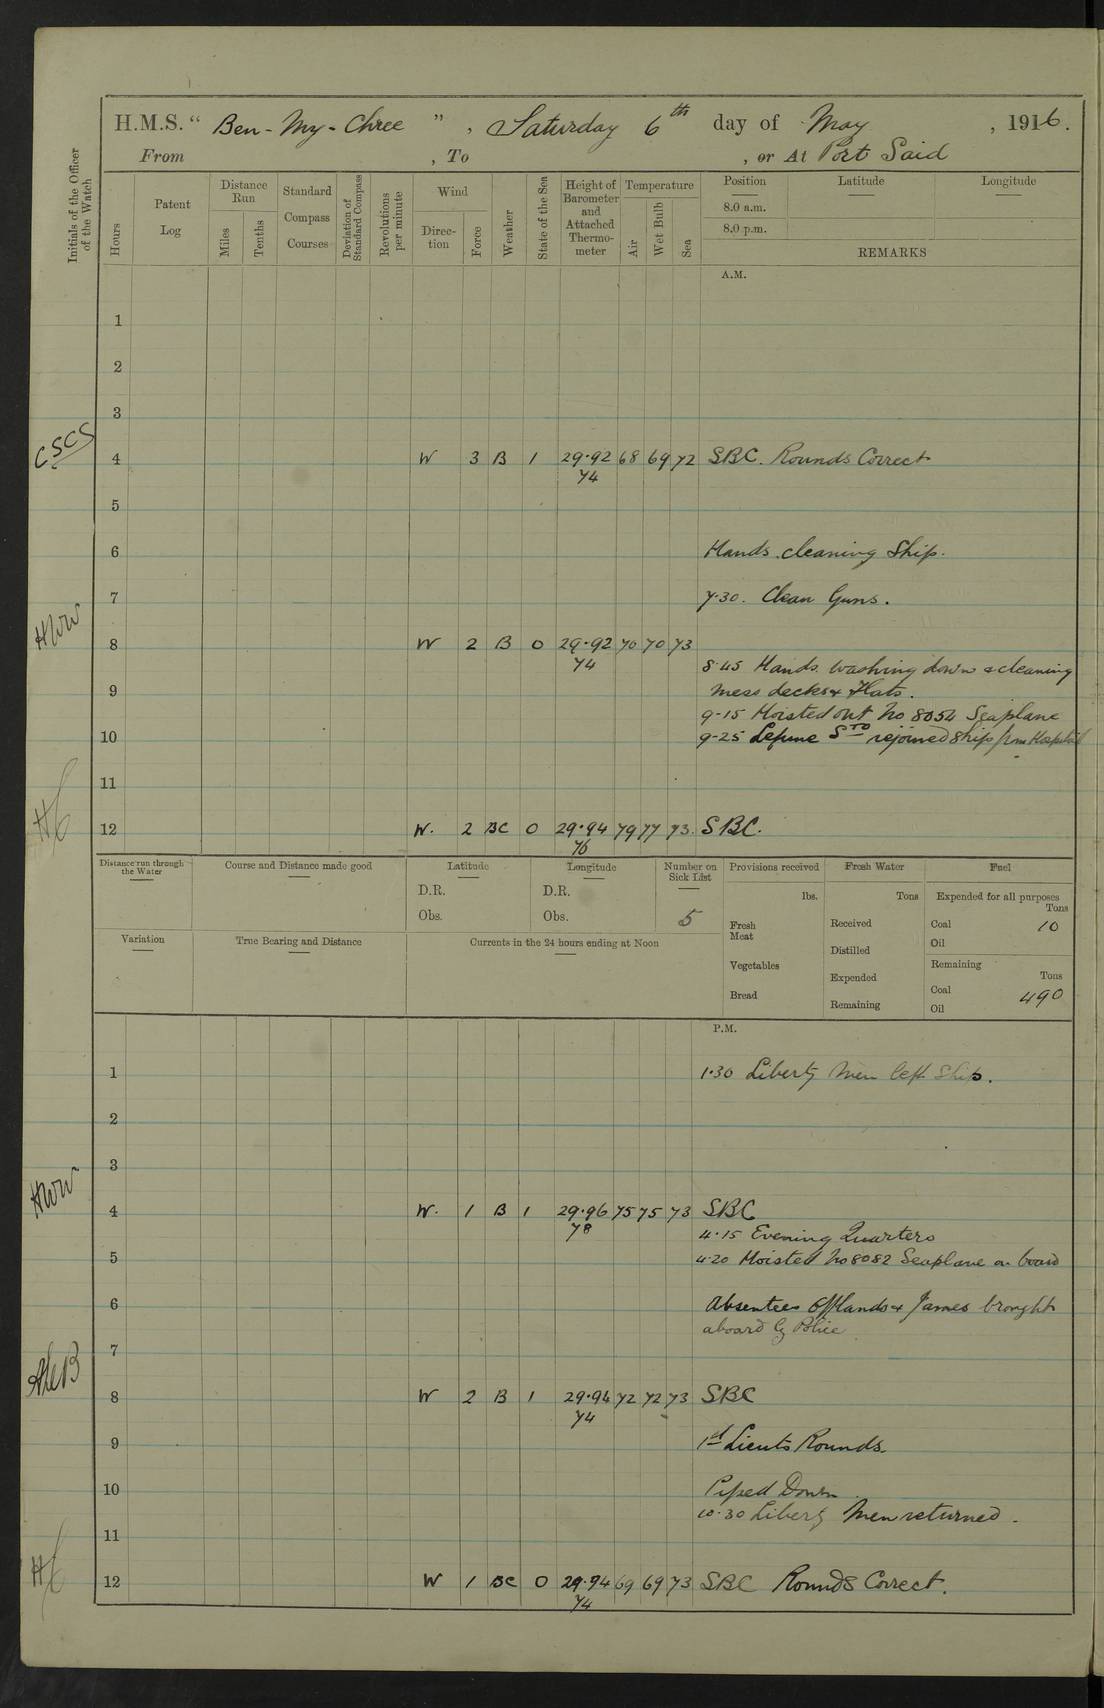 H.M.S. “ Ben-My-Chree ” , Saturday 6th day of May , 1916.
From , To , or At Port Said
Initials of the Officer of the Watch
Hours
Patent Log
Distance Run
Miles
Tenths
Standard Compass Courses
Deviation of Standard Compass
Revolutions per minute
Wind
Direc-tion
Force
Weather
State of the Sea
Height of Barometer and Attached Thermo-meter
Temperature
Air
Wet Bulb
Sea
Position Latitude Longitude
8.0 a.m.
8.0 p.m.
REMARKS
A.M.
1
2
3
CSCS
4 W 3 B 1 29.92 68 69 72 SBC. Rounds Correct
74
5
6 Hands cleaning Ship.
7 7.30. Clean Guns.
HWW
8 W 2 B 0 29.92 70 70 73
74
8.45 Hands washing down & cleaning
9 mess decks & Flats.
9-15 Hoisted out No 8054 Seaplane
10 9-25 Sto rejoined Ship from Hospital
11
12 W. 2 BC 0 29.94 79 77 73. SBC.
76
Distance run through the Water
Course and Distance made good
Latitude
D.R.
Obs.
Longitude
D.R.
Obs.
Number on Sick List
5
Provisions received
lbs.
Fresh Meat
Vegetables
Bread
Fresh Water
Tons
Received
Distilled
Expended
Remaining
Fuel
Expended for all purposes
Tons
Coal 10
Oil
Remaining
Tons
Coal 490
Oil
Variation
True Bearing and Distance
Currents in the 24 hours ending at Noon
P.M.
1 1.30 Liberty Men left Ship.
2
3
HWW
4 W. 1 B 1 29.96 75 75 73 SBC
78
4.15 Evening Quarters
5 4.20 Hoisted No 8082 Seaplane on board
6 Absentees Offlands & James brought
aboard by Police
7
8 W 2 B 1 29.94 72 72 73 SBC
74
9 1st Lieuts Rounds.
10 Piped Down.
10.30 Liberty Men returned.
11
12 W 1 BC 0 29.94 69 69 73 SBC Rounds Correct.
74